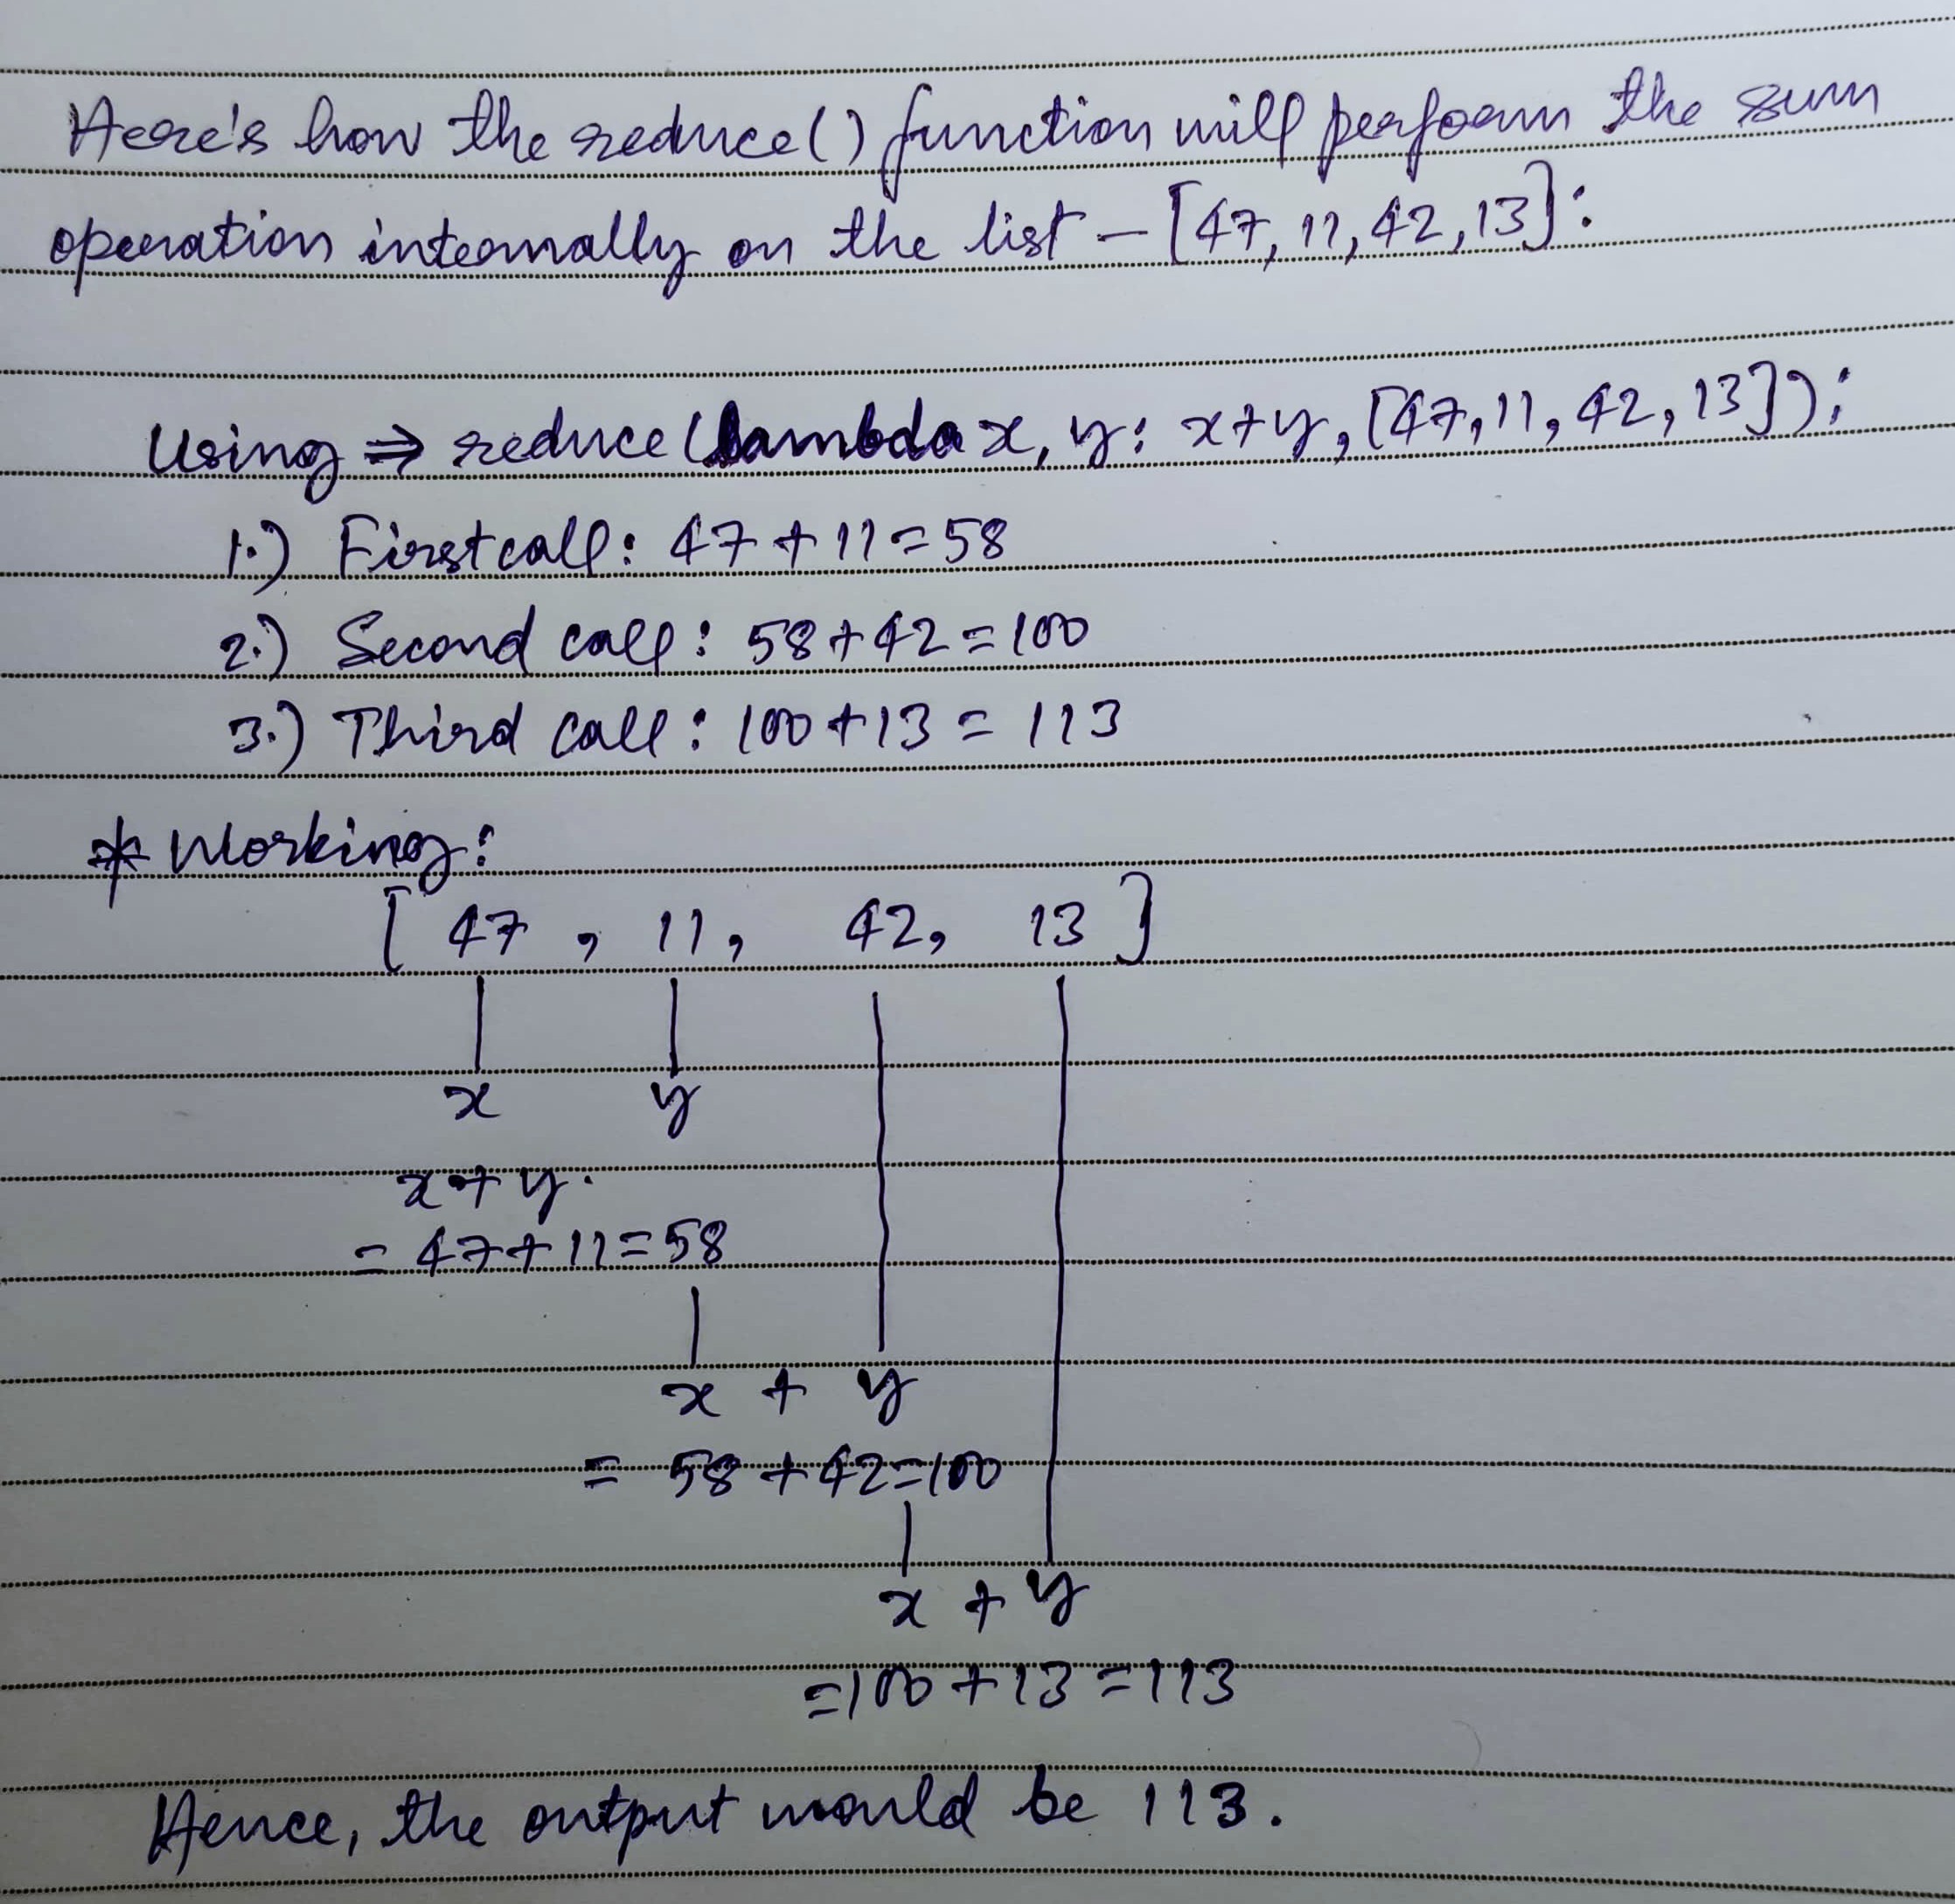 Here's how the reduce() function will perform the sum
operation internally on the list - [47, 11, 42, 13]:
Using ⇒ reduce (lambda x, y: x+y, [47, 11, 42, 13]);
1.) First call: 47 + 11 = 58
2.) Second call: 58 + 42 = 100
3.) Third call: 100 + 13 = 113
* Working:
[ 47 , 11, 42, 13 ]
x y
x + y.
= 47 + 11 = 58
x + y
= 58 + 42 = 100
x + y
= 100 + 13 = 113
Hence, the output would be 113.